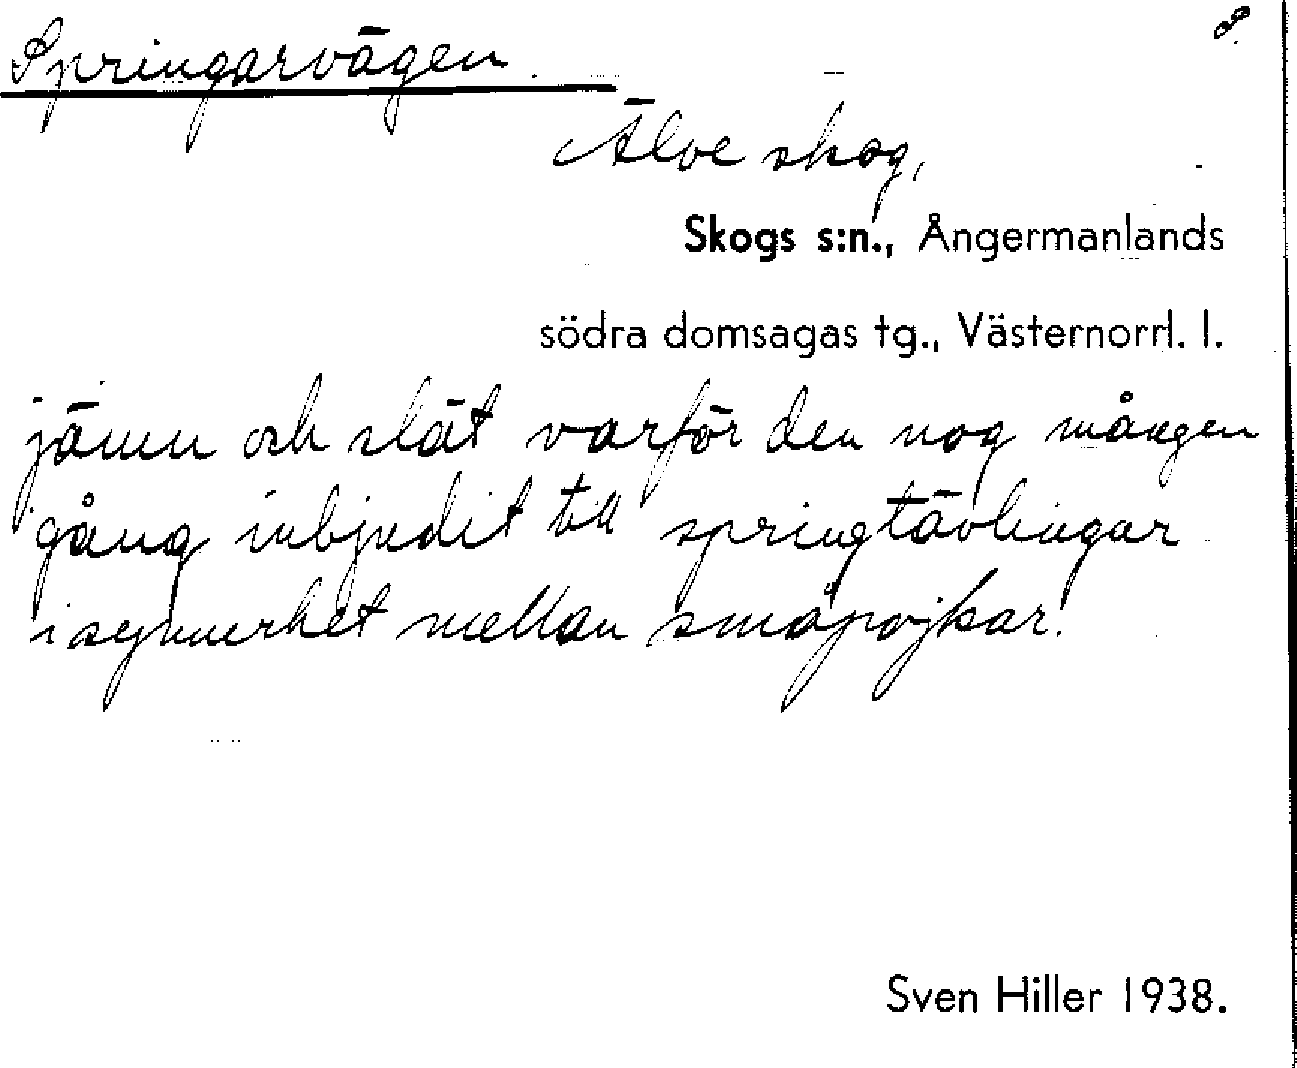 Springarvägen. 8.
Älve skog,
Skogs s:n., Ångermanlands
södra domsagas tg., Västernorrl. l.
jämn och slät varför den nog mången
gång inbjudit till springtävlingar
isynnerhet mellan småpojkar.
Sven Hiller 1938.